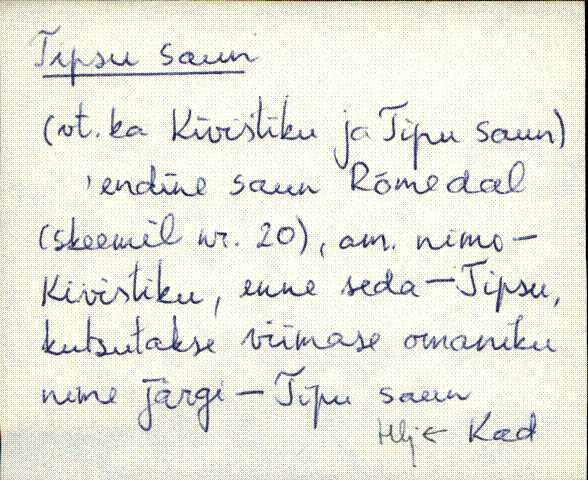 Tipsu saun
(vt. ka Kivistiku ja Tipu saun)
'endine saun Rõmedal
(skeemil nr. 20), am. nimo-
Kivistiku, enne seda – Tipsu,
kutsutakse viimase omaniku
nime järgi – Tipu saun
Hlj ← Kad